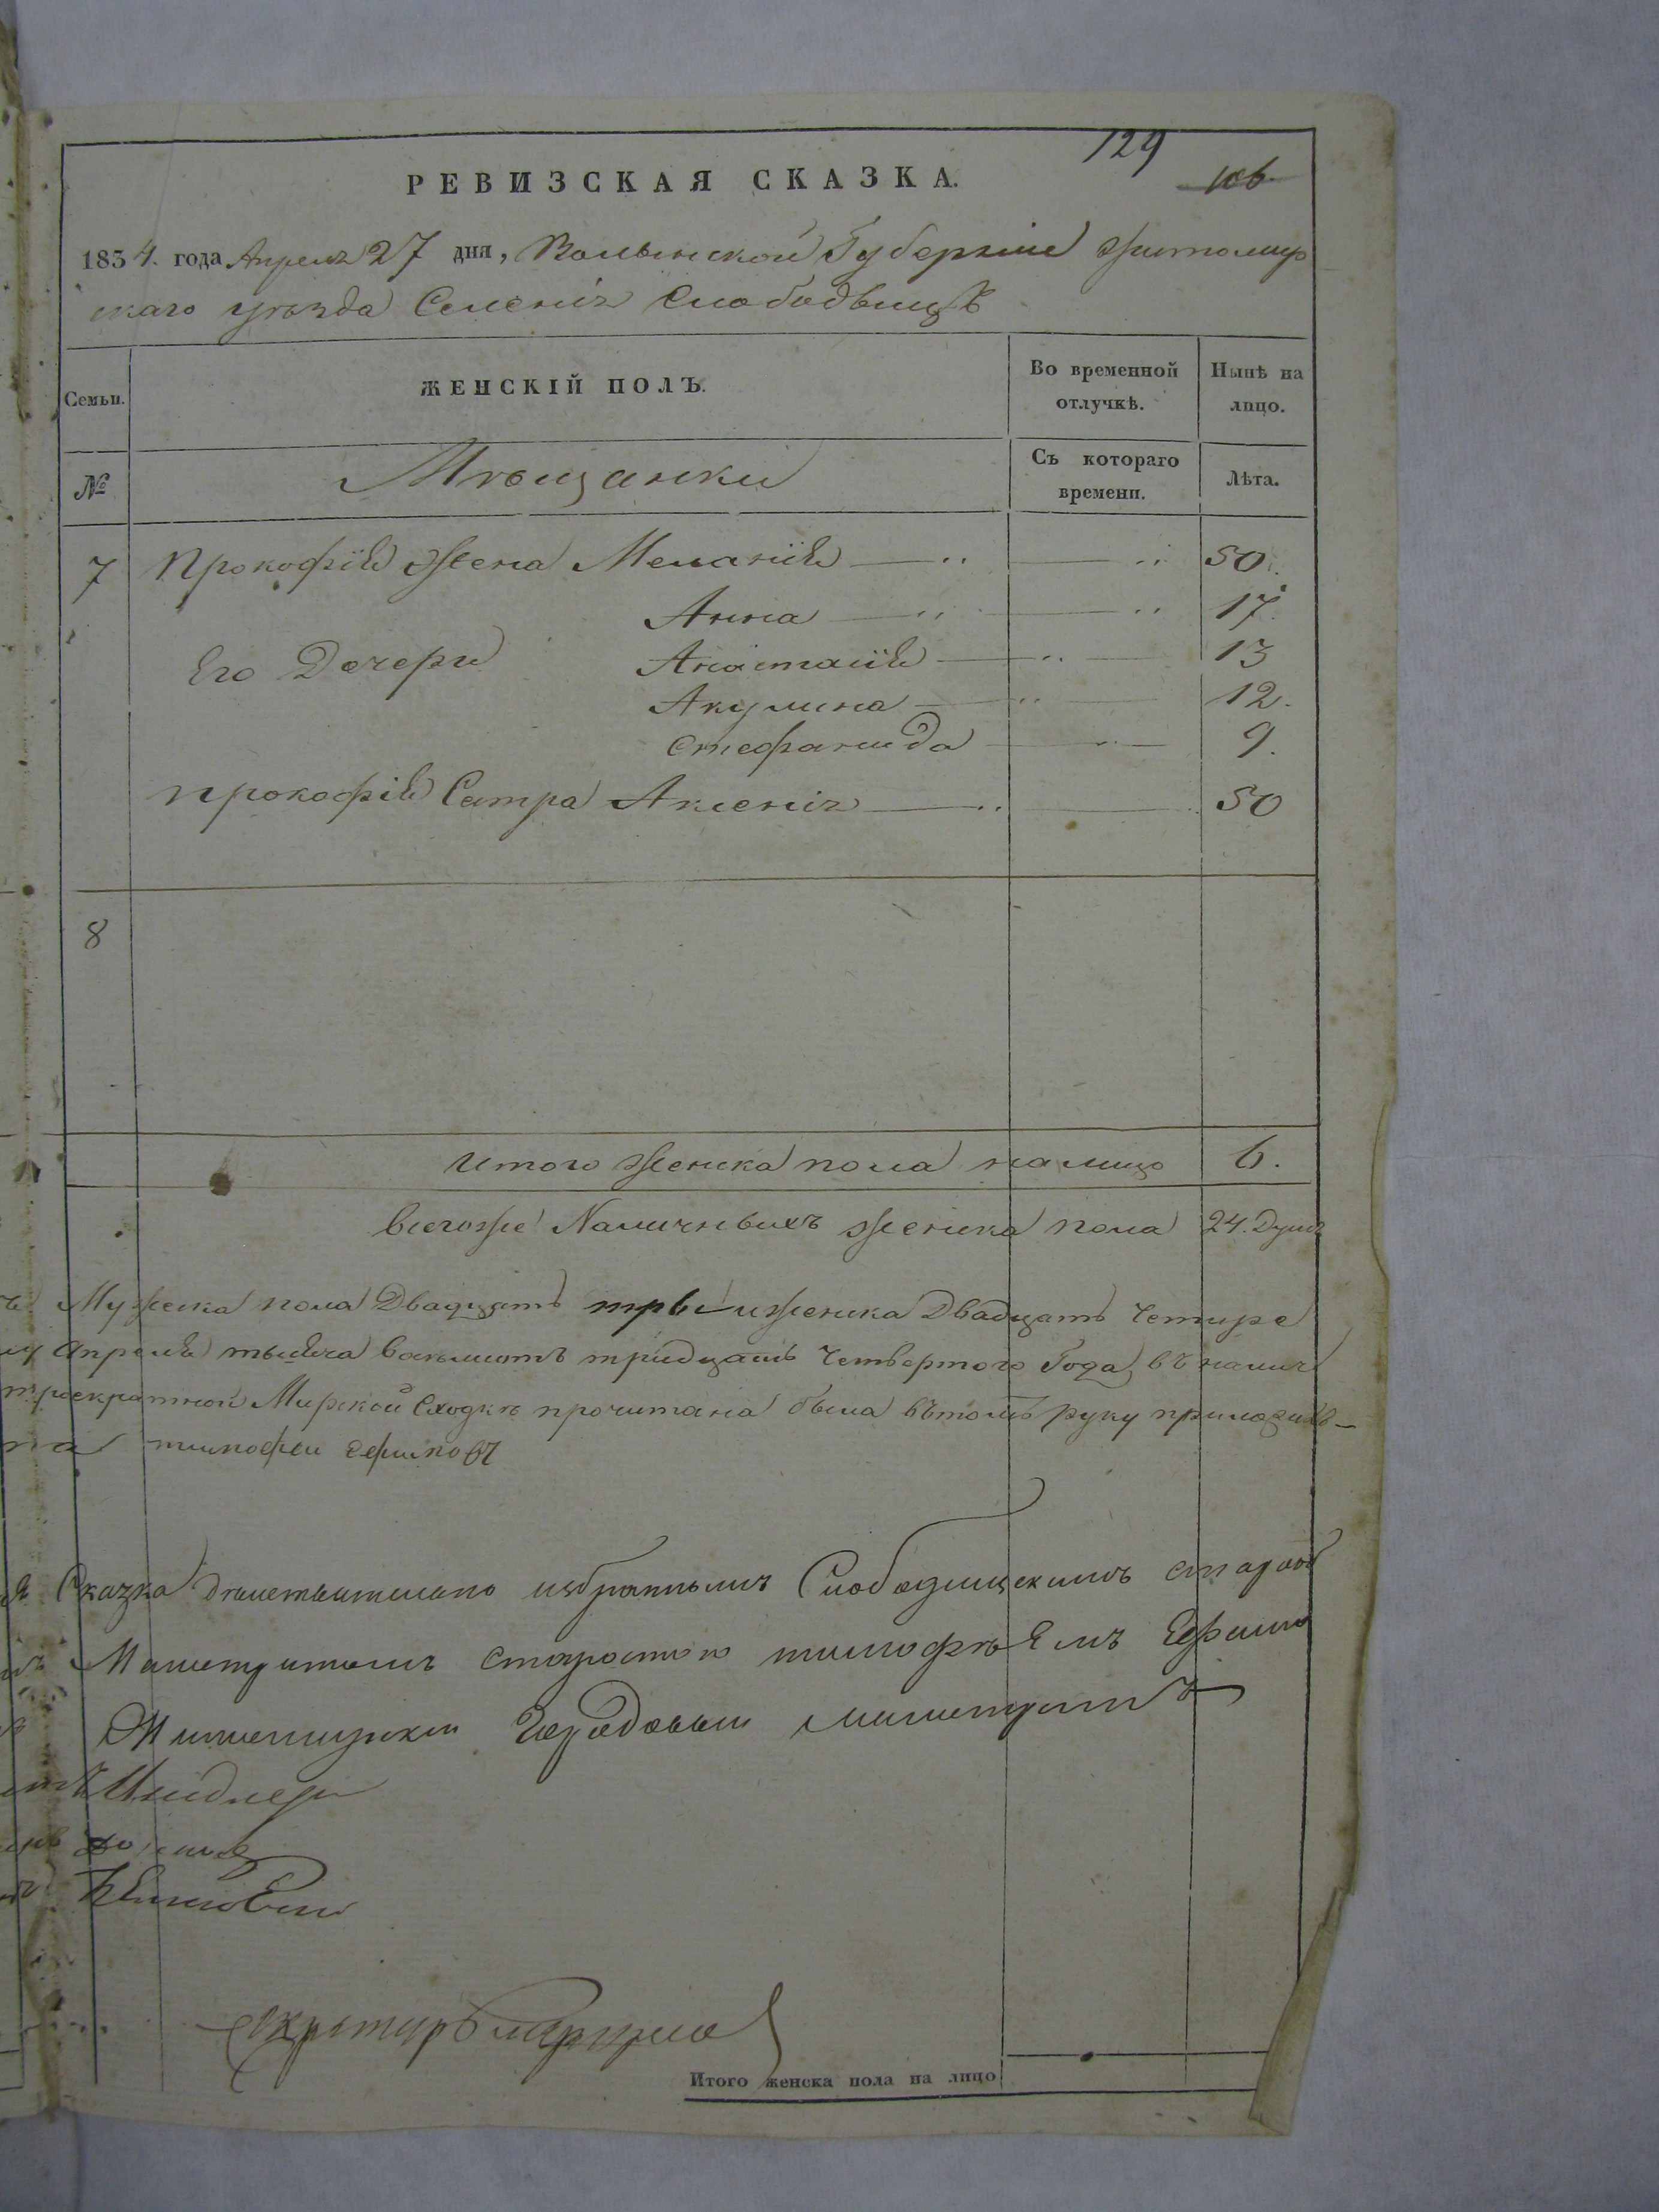 129
106
РЕВИЗСКАЯ СКАЗКА.
1834. года Апреля 27 дня, Волынской Губерніи Житомир
скаго уѣзда Селенія Слободыщъ
Семьи.
ЖЕНСКІЙ ПОЛЪ.
Во временной отлучкѣ.
Нынѣ на лицо.
№
Мѣщанки
Съ котораго времени.
Лѣта.
7 Прокофія Жена Меланія 50.
Анна 17.
Его Дочери Анастасія 13
Акулина 12.
Стефанида 9.
Прокофія Сестра Аксенія 50
8
Итого женска пола налицо 6.
Всегоже Наличныхъ женска пола 24. Душъ
Мужеска пола Двадцать три и женска Двадцать Четире
Апреля тысяча восемьсотъ тридцать Четвертого Года, въ
троекратной Мирской Сходкѣ прочитана была въ томъ руку приложилъ
тимофеи ефимовъ
Сказка Действительно избраннымъ Слободищскимъ
старостою тимофѣемъ Ефимо
Городовыи
Секретарь
Итого женска пола на лицо